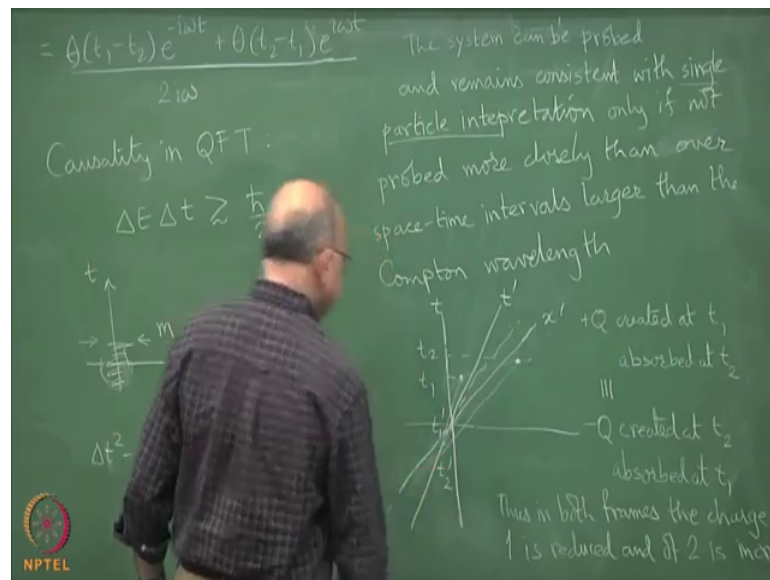 = θ(t₁-t₂)e^{-iωt} + θ(t₂-t₁)e^{iωt}
2iω
Causality in QFT:
ΔE Δt ≳ ħ
t
→ ← m
Δt² -
The system can be probed
and remains consistent with single
particle intepretation only if not
probed more closely than over
space-time intervals larger than the
Compton wavelength
t t' x'
t₂
t₁
t₁'
t₂'
+Q created at t₁
absorbed at t₂
≡
-Q created at t₂
absorbed at t₁
Thus in both frames the charge
1 is reduced and of 2 is incr
NPTEL